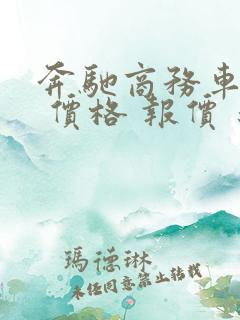 奔馳商務車
價格 報價
瑪德琳
未经同意禁止转载